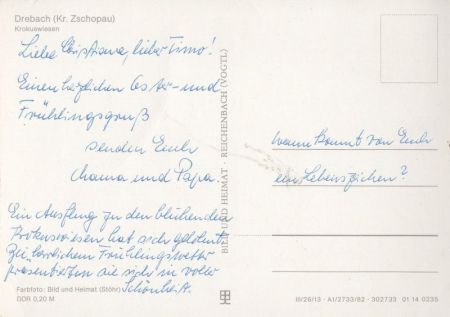 Drebach (Kr. Zschopau)
Krokuswiesen
Liebe Christiana, lieber Timo!
Einen herzlichen Oster- und
Frühlingsgruß
senden Euch
Mama und Papa
Ein Ausflug zu den blühenden
Krokuswiesen hat sich gelohnt.
Bei herrlichem Frühlingswetter
präsentierten sie sich in voller
Schönheit.
Farbfoto: Bild und Heimat (Stöhr)
DDR 0,20 M
BILD UND HEIMAT · REICHENBACH (VOGTL)
wann kommt von Euch
ein Lebenszeichen?
III/26/13 · A1/2733/82 · 302733 01 14 0235